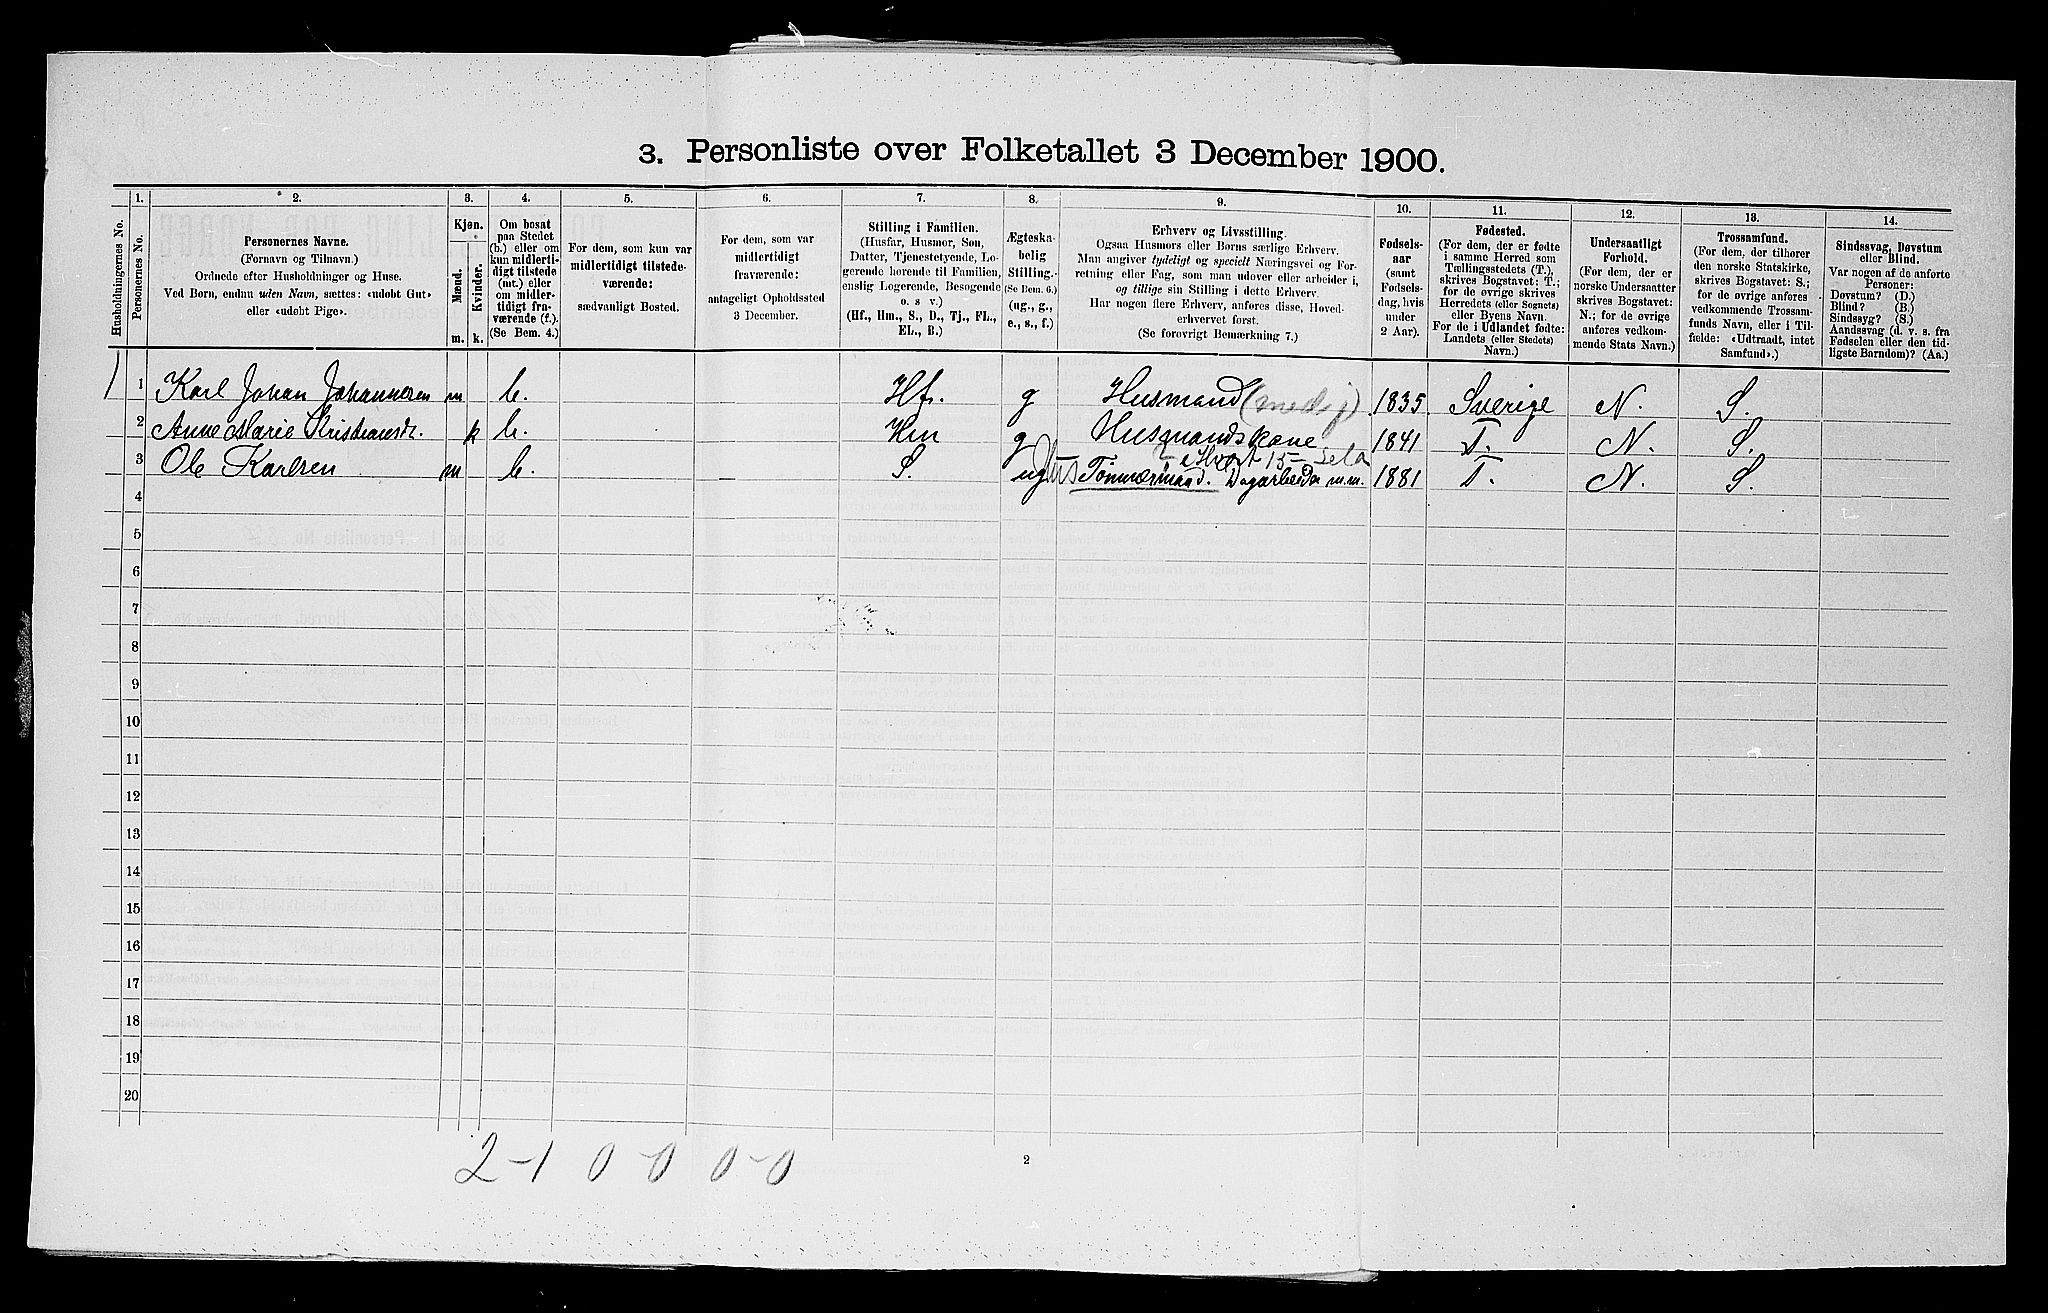 3. Personliste over Folketallet 3 December 1900.
1. 2. 3. 4. 5. 6. 7. 8. 9. 10. 11. 12. 13. 14.
Husholdningernes No.
Personernes No.
Personernes Navne.
(Fornavn og Tilnavn.)
Ordnede efter Husholdninger og Huse.
Ved Børn, endnu uden Navn, sættes: «udøbt Gut»
eller «udøbt Pige».
Kjøn.
Mænd.
Kvinder.
m. k.
Om bosat
paa Stedet
(b.) eller om
kun midlerti-
digt tilstede
(mt.) eller
om midler-
tidigt fra-
værende (f.).
(Se Bem. 4.)
For dem, som kun var
midlertidigt tilstede-
værende:
sædvanligt Bosted.
For dem, som var
midlertidigt
fraværende:
antageligt Opholdssted
3 December.
Stilling i Familien.
(Husfar, Husmor, Søn,
Datter, Tjenestetyende, Lo-
gerende hørende til Familien,
enslig Logerende, Besøgende
o. s v.)
(Hf., Hm., S., D., Tj., FL.,
EL., B.)
Ægteska-
belig
Stilling.
(Se Bem. 6.)
(ug., g.,
e., s., f.)
Erhverv og Livsstilling.
Ogsaa Husmors eller Børns særlige Erhverv.
Man angiver tydeligt og specielt Næringsvei og For-
retning eller Fag, som man udover eller arbeider i,
og tillige sin Stilling i dette Erhverv.
Har nogen flere Erhverv, anføres disse, Hoved-
erhvervet først.
(Se forøvrigt Bemærkning 7.)
Fødsels-
aar
(samt
Fødsels-
dag, hvis
under
2 Aar).
Fødested.
(For dem, der er fødte
i samme Herred som
Tællingsstedets (T.),
skrives Bogstavet: T.;
for de øvrige skrives
Herredets (eller Sognets)
eller Byens Navn.
For de i Udlandet fødte:
Landets (eller Stedets)
Navn.)
Undersaatligt
Forhold.
(For dem, der er
norske Undersaatter
skrives Bogstavet:
N.; for de øvrige
anføres vedkom-
mende Stats Navn.)
Trossamfund.
(For dem, der tilhører
den norske Statskirke,
skrives Bogstavet: S.;
for de øvrige anføres
vedkommende Trossam-
funds Navn, eller i Til-
fælde: «Udtraadt, intet
Samfund».)
Sindssvag, Døvstum
eller Blind.
Var nogen af de anførte
Personer:
Døvstum? (D.)
Blind? (B.)
Sindssyg? (S.)
Aandssvag (d. v. s. fra
Fødselen eller den tid-
ligste Barndom)? (Aa.)
1 1 Karl Johan Johannesen m b. Hf. g Husmand (med j) 1835 Sverige N. S.
2 Anne Marie Kristiansdr. k b. Hm g Husmandskone 1841 T. N. S.
3 Ole Karlsen m b. S. ug Tømmermand. Dagarbeider m.m. 1881 T. N. S.
4
5
6
7
8
9
10
11
12
13
14
15
16
17
18
19
20
2-1 0-0 0-0
2